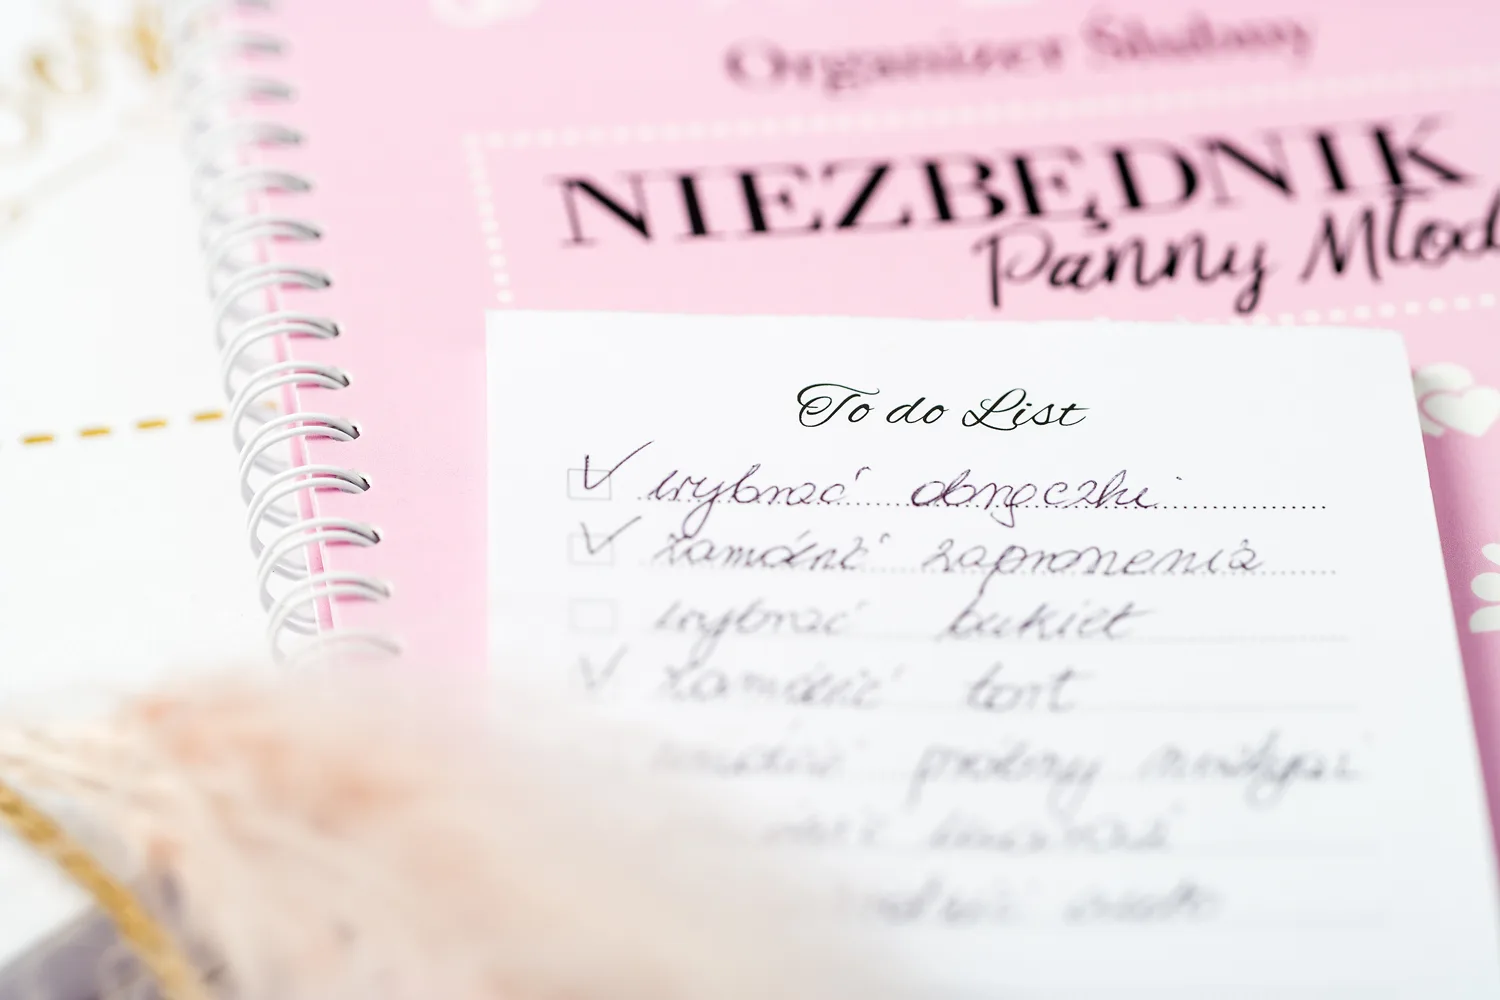 Organizer Ślubny
NIEZBĘDNIK
Panny Młod
To do List
wybrać obrączki
zamówić zaproszenia
wybrać bukiet
zamówić tort
próbny makijaż